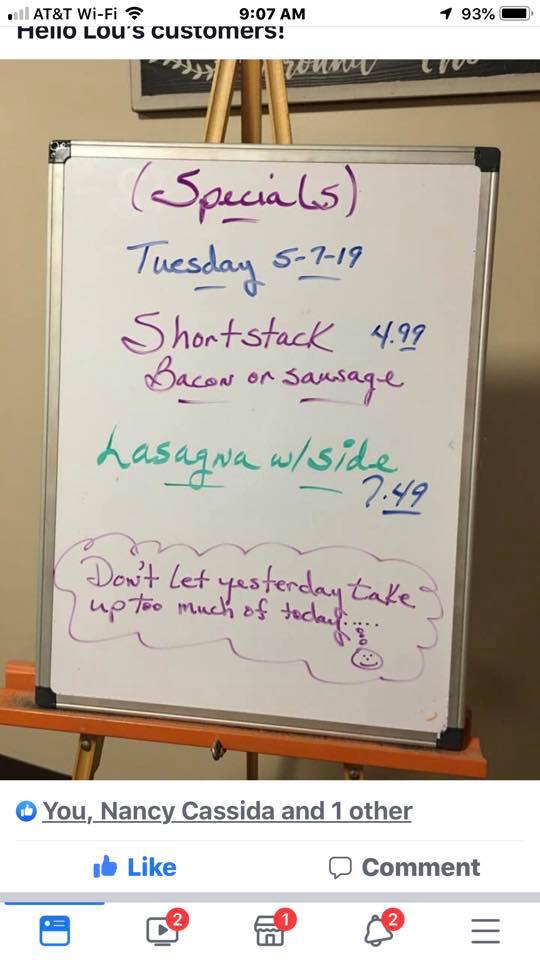 AT&T Wi-Fi 9:07 AM 93%
Hello Lou's customers!
(Specials)
Tuesday 5-7-19
Shortstack 4.99
Bacon or sausage
Lasagna w/side
7.49
Don't Let yesterday take
up too much of today.....
You, Nancy Cassida and 1 other
Like Comment
2 1 2